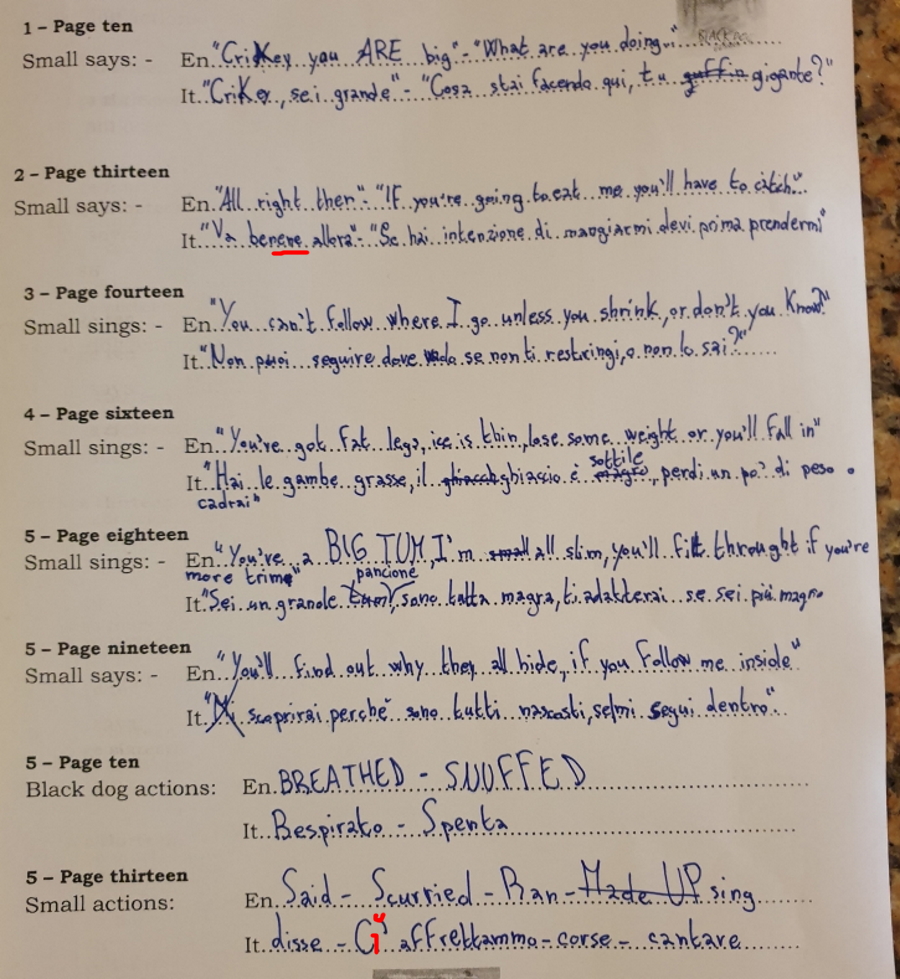 1 – Page ten
BLACK DOG
Small says: - En "Crikey you ARE big" - "What are you doing.."
It "Crikey, sei grande" - "Cosa stai facendo qui, tu gigante?"
2 – Page thirteen
Small says: - En "All right then" - "If you're going to eat me you'll have to catch"
It "Va benene allora" - "Se hai intenzione di mangiarmi devi prima prendermi"
3 – Page fourteen
Small sings: - En "You can't follow where I go unless you shrink, or don't you know?"
It "Non puoi seguire dove vado se non ti restringi, o non lo sai?"
4 – Page sixteen
Small sings: - En "You've got fat legs, ice is thin, lose some weight or you'll fall in"
It "Hai le gambe grasse, il ghiaccio è sottile, perdi un po' di peso o
cadrai"
5 – Page eighteen
Small sings: - En "You've a BIG TUM, I'm all slim, you'll fit throught if you're
more trime"
It "Sei un grande pancione, sono tutta magra, ti adatterai se sei più magro
5 – Page nineteen
Small says: - En "You'll find out why they all hide, if you follow me inside"
It " scoprirai perchè sono tutti nascosti, se mi segui dentro"
5 – Page ten
Black dog actions: En BREATHED - SNUFFED
It Respirato - Spenta
5 – Page thirteen
Small actions: En Said - Scurried - Ran - Made UP sing
It disse - Ci affrettammo - corse - cantare